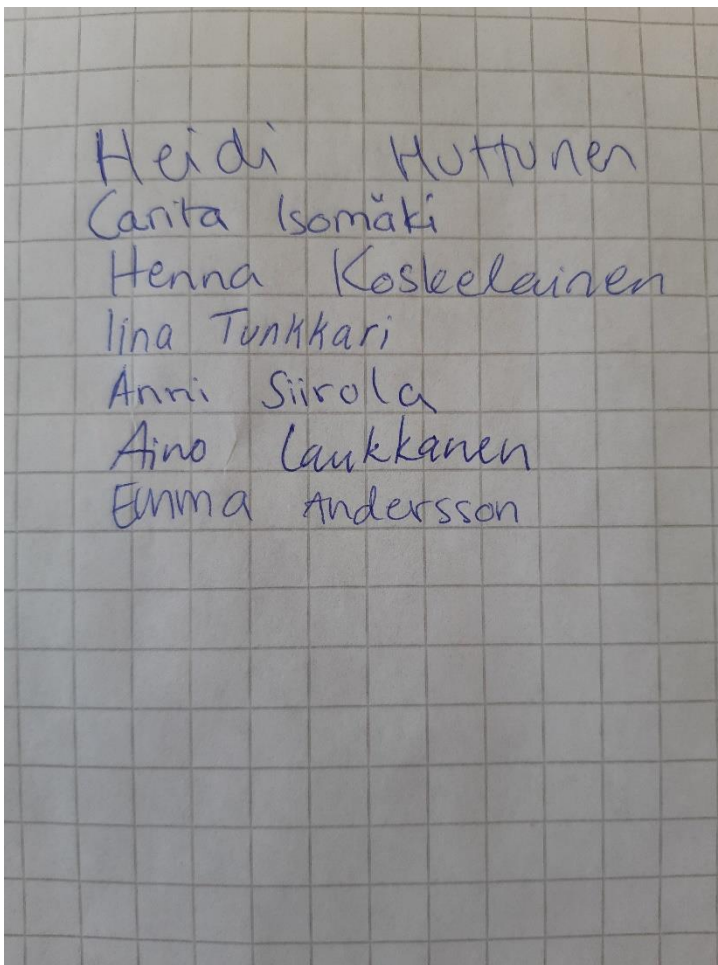 Heidi Huttunen
Carita Isomäki
Henna Koskelainen
Iina Tunkkari
Anni Siirola
Aino Laukkanen
Emma Andersson